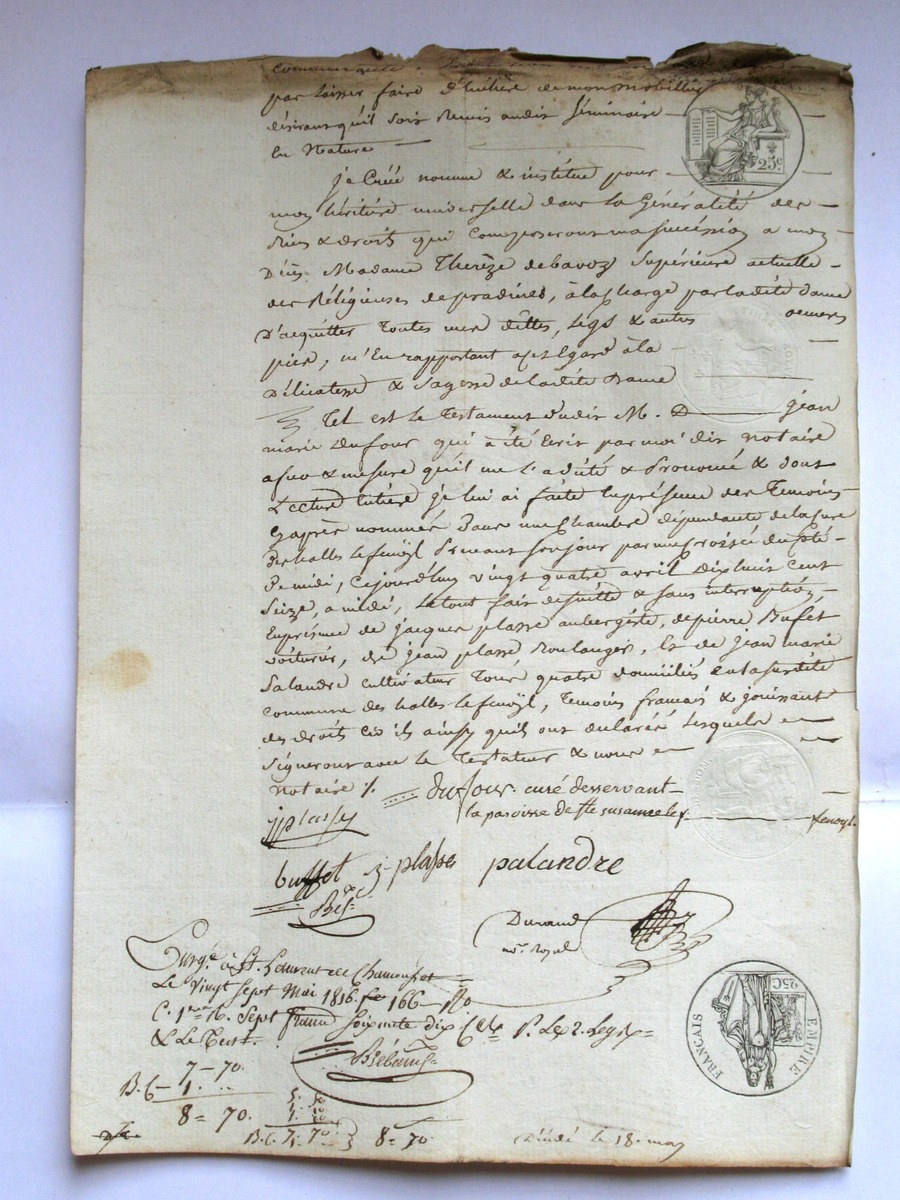 par laisser faire d'hilière de mon mobillier
désirant qu'il soit Remis audit Séminaire
En Nature
je Créé nomme & institue pour
mon héritière universelle dans la Généralité des
Biens & droits qui Composeront ma succession a mon
Décès Madame Thérèze debavoz Supérieure actuelle
des Réligieuses de pradines, à la Charge par ladite dame
D'acquitter Toutes mes dêttes, Legs & autres oeuvres
pies, m'En rapportant a cet Egard à la
Délicatesse & Sagesse de ladite Dame
Tel est le Testament dudit M. D jean
marie Dufour qui à été Ecrit par moi dit notaire
a fur & mesure qu'il me l'a dicté & Prononcé & dont
Lecture Entière je lui ai faite En présence des Temoins
Cy après nommés Dans une Chambre dépendante de la Cure
Des halles le fenoÿl Prenant son jour par une Croisée du Coté
De midi, Cejourd'huy vingt quatre avril dix huit Cent
Seize, a midi, Le tout fait de suitte & sans interruption,
En présence de jacques plasse aubergiste, de pierre Bufet
voiturier, de jean plasse Boulanger, Et de jean marie
Palandre cultivateur Tous quatre domiciliés En la susdite
Commune des halles le fenoÿl, Temoins français & jouissant
des droits Civils ainsy qu'ils ont declaré Lesquels
Signeront avec le Testateur & nous
notaire ./.
Dufour curé desservant
la paroisse de Ste susanne les fenoyl.
jjplassy
buffet j. plasse palandre
Durand
nore. Royal
Enrgé. à St. Laurent de Chamousset
Le vingt Sept Mai 1816. fo 166
C. 1ere R. Sept francs soixante dix Ces P. Les 2. Legs
& Le Test.
7 - 70.
B. C - 1. ..
8 = 70.
B. C. 8 = 70.
25 C
EMPIRE
FRANÇAIS
25 C